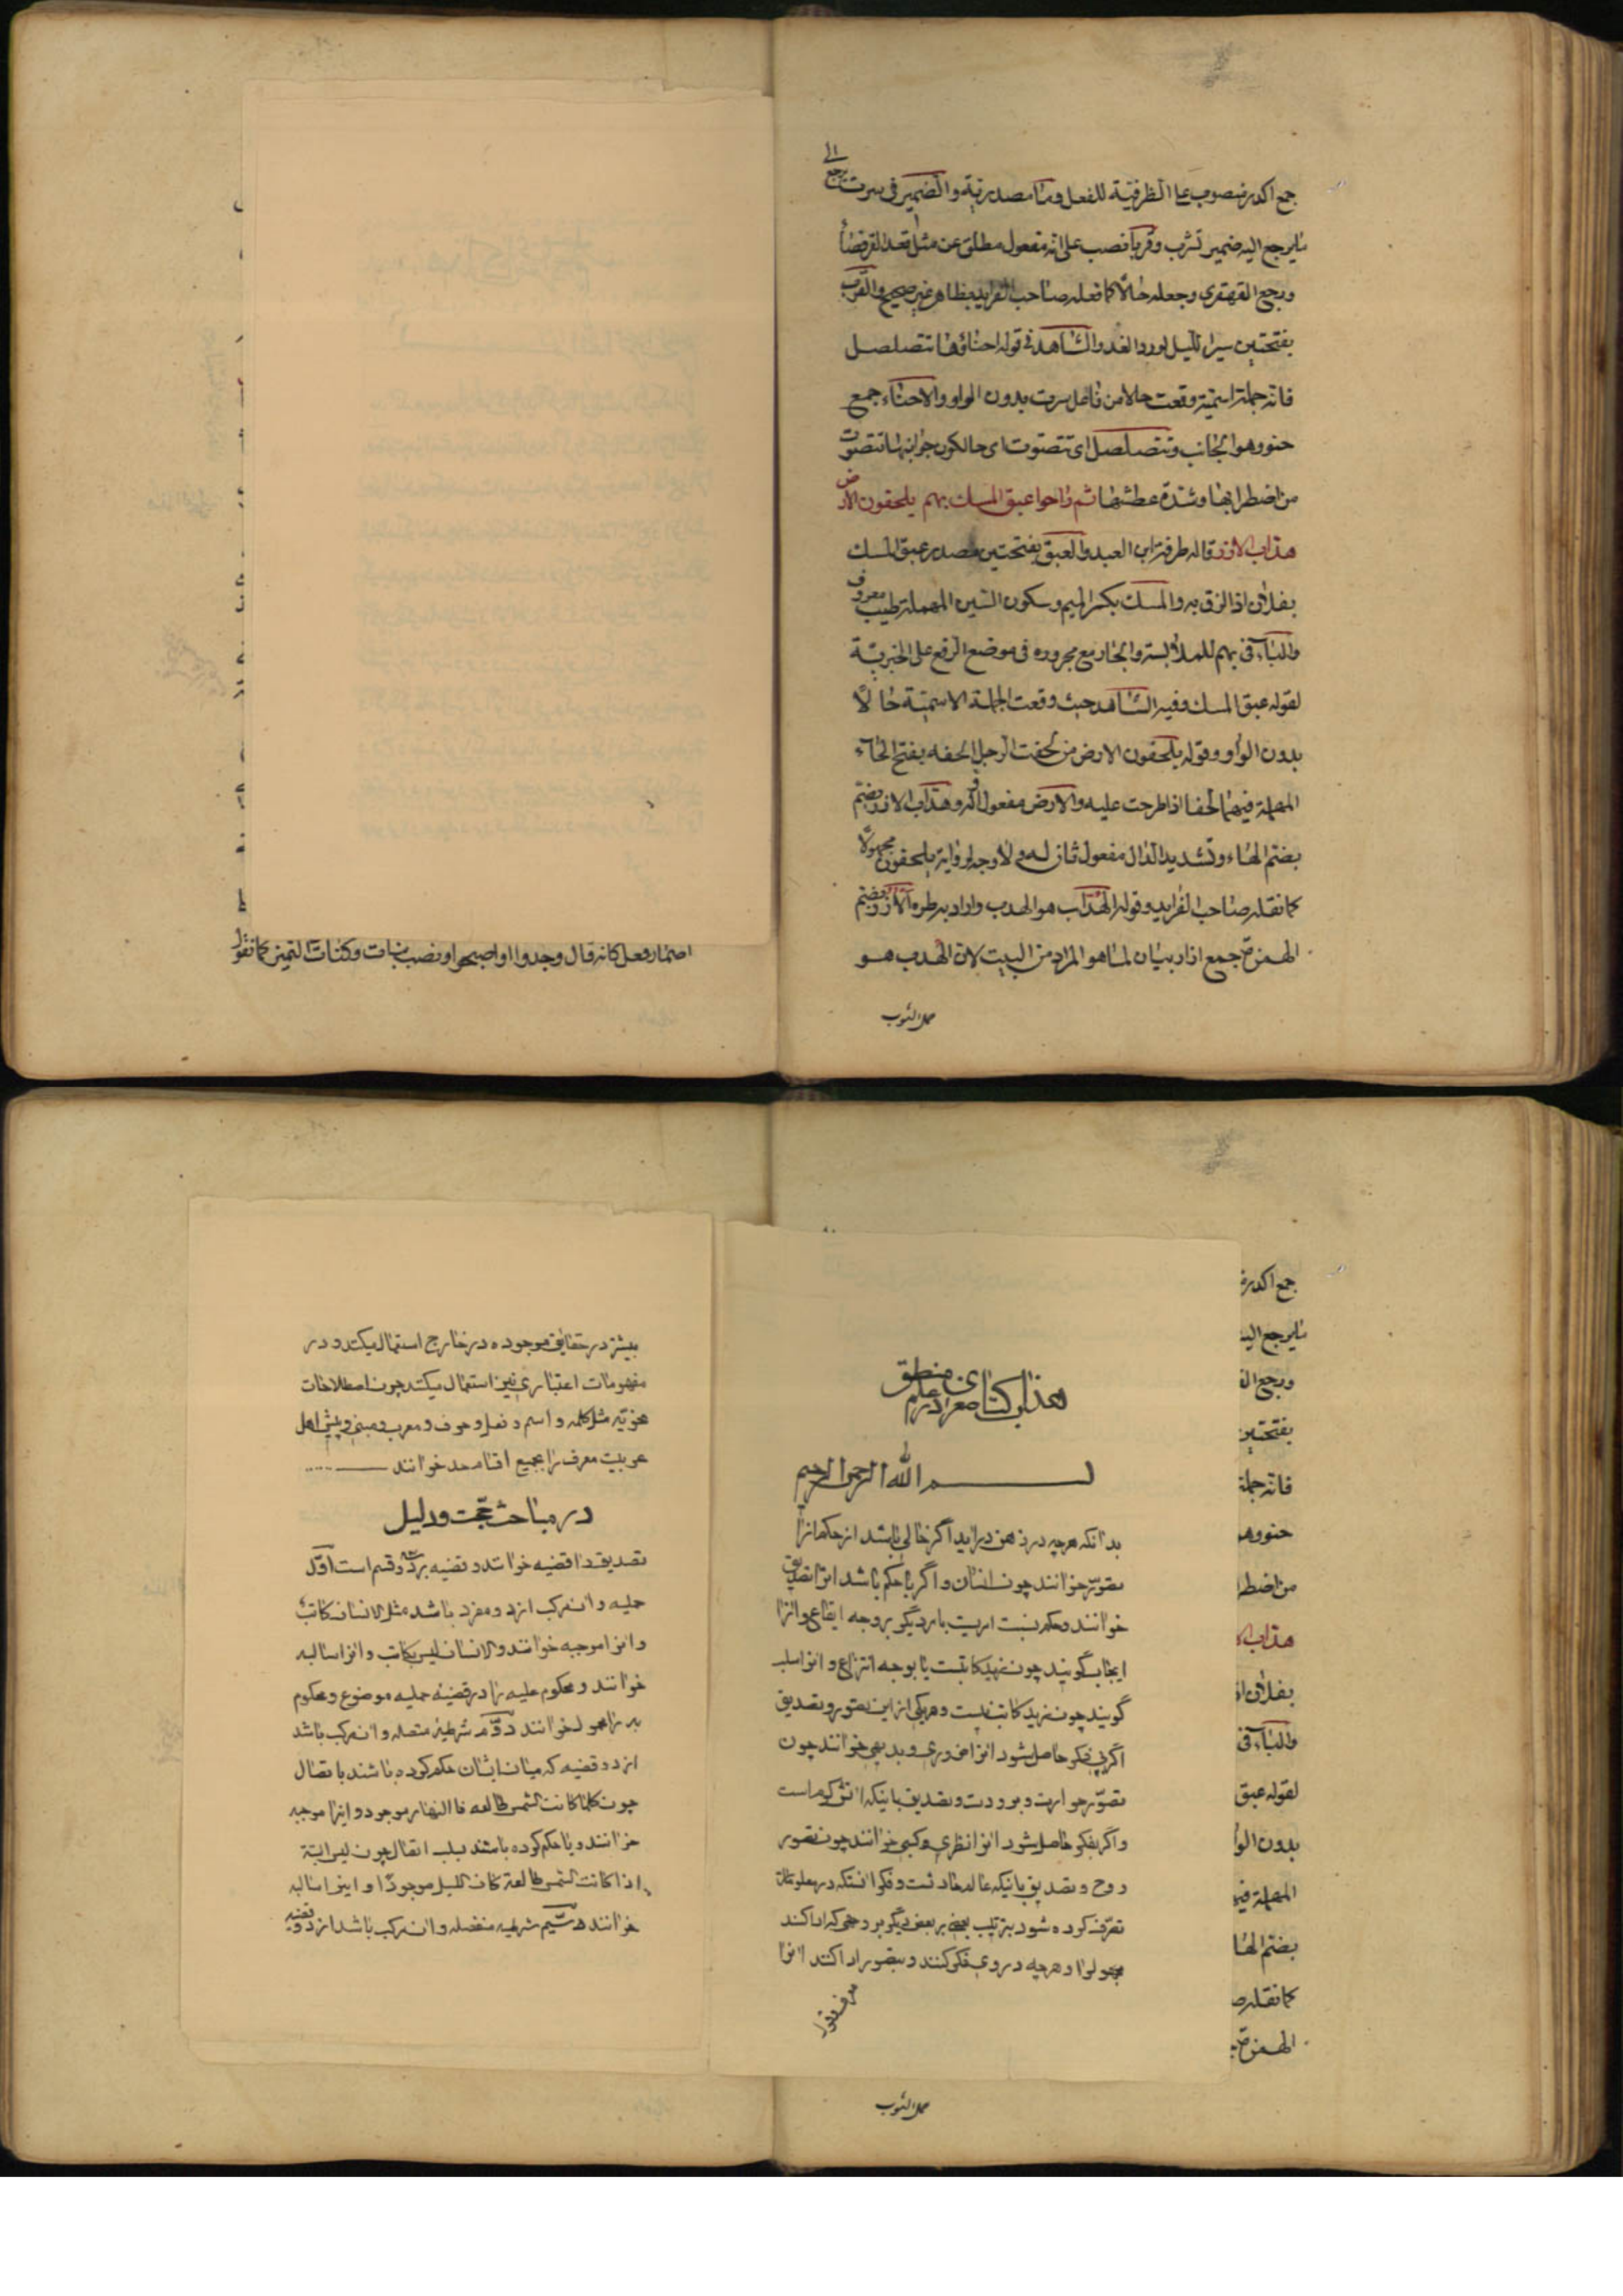 جمع اكدر منصوب على الظرفيّة للفعل وما مصدريّة والضمير فى سرت يرجع الى
ما يرجع اليه ضمير تشرب وقربا نصب على انه مفعول مطلق عن مثل قعد القرفصاء
ورجع القهقرى وجعله حالاً كما فعله صاحب الفرايد بظاهر غير صحيح والقرب
بفتحتين سير الليل لورد الغد والشاهد فى قوله احناؤها تتصلصل
فانه جملة اسمية وقعت حالا من فاعل سرت بدون الواو والاحناء جمع
حنو وهو الجانب وتتصلصل اى تتصوت اى حالكون جوانبها تتصوت
من اضطرابها وشدة عطشها ثم راحوا عبق المسك بهم يلحفون الارض
هداب الازر قاله طرفة ابن العبد والعبق بفتحتين مصدر عبق المسك
بفلان اذا لزق به والمسك بكسر الميم وسكون السين المهملة طيب معروف
والباء فى بهم للملابسة والجار مع مجروره فى موضع الرفع على الخبريّة
لقوله عبق المسك وفيه الشاهد حيث وقعت الجملة الاسميّة حالاً
بدون الواو وقوله يلحفون الارض من لحفت الرجل الحفه بفتح الحاء
المهملة فيهما لحفا اذا طرحت عليه والارض مفعول اول له وهداب الازر بضم
بضم الهاء وتشديد الدال مفعول ثان له ولا وجه لرواية يلحفون مجهولاً
كما نقله صاحب الفرايد وقوله الهداب هو الهدب واراد به طره الازر بضم
الهمزة جمع ازار بيان لما هو المراد من البيت لان الهدب هو
خمل الثوب
اضمار فعل كانه قال وجدوا او اصبحوا ونصب بنبات وكنبات التميز كما نقول
هذا كتاب صغرى در علم منطق
بسم الله الرحمن الرحيم
بدانكه هرچه در ذهن درايد اگر خالى باشد از حكم انرا
تصوّر خوانند چون انسان و اگر با حكم باشد انرا تصديق
خوانند و حكم نسبت امريست بامر ديگر بر وجه ايقاع و انرا
ايجاب گويند چون زيد كاتبست يا بوجه انتزاع و انرا سلب
گويند چون زيد كاتب نيست و هر يكى از اين تصور و تصديق
اگر بى فكر حاصل شود انرا ضرورى و بديهى خوانند چون
تصوّر حرارت و برودت و تصديق باينكه اتش گرم است
و اگر بفكر حاصل شود انرا نظرى و كسبى خوانند چون تصور
روح و تصديق باينكه عالم حادثست و فكر انستكه در معلومات
تصرّف كرده شود بترتيب بعضى بر بعض ديگر بر وجهى كه ادا كند
بمجهول و هرچه در وى فكر كنند و بتصور ادا كند انرا
معرف و قول
بيشتر در حقايق موجوده در خارج استعمال ميكنند و در
مفهومات اعتبارى نيز استعمال ميكنند چون اصطلاحات
نحويّه مثل كلمه و اسم و فعل و حرف و معرب و مبنى و پيش اهل
عربيت معرف را بجميع اقسام حد خوانند
در مباحث حجّت و دليل
تصديق را قضيه خوانند و قضيه بر سه قسم است اوّل
حمليه و ان مركب از دو مفرد باشد مثل الانسان كاتب
و انرا موجبه خوانند و الانسان ليس بكاتب و انرا سالبه
خوانند و محكوم عليه را در قضيه حمليه موضوع و محكوم
به را محمول خوانند دوّم شرطيه متصله و ان مركب باشد
از دو قضيه كه ميان ايشان حكم كرده باشند باتصال
چون كلما كانت الشمس طالعه فالنهار موجود و اينرا موجبه
خوانند و يا حكم كرده باشند بسلب اتصال چون ليس البتة
اذا كانت الشمس طالعة كان الليل موجودًا و اينرا سالبه
خوانند سيّم شرطيه منفصله و ان مركب باشد از دو قضيه
جمع اكدر
ما يرجع اليه
ورجع
بفتحتين
فانه جملة
حنو وهو
من
هداب
بفلان
والباء فى
لقوله عبق
بدون
المهملة
بضم
كما نقله
الهمزة
خمل الثوب